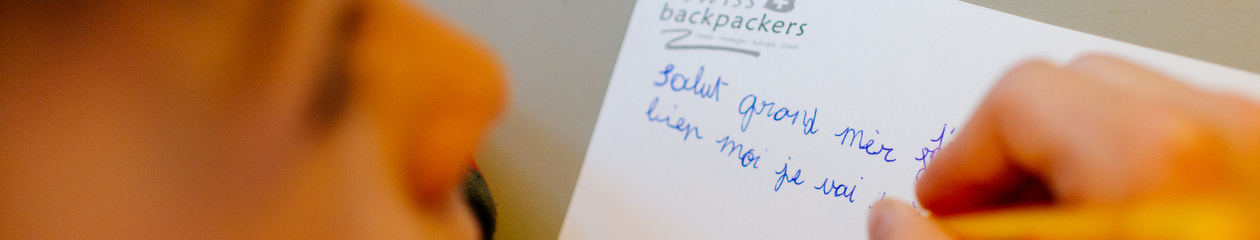 backpackers
Salut grand mèr
bien moi je vai